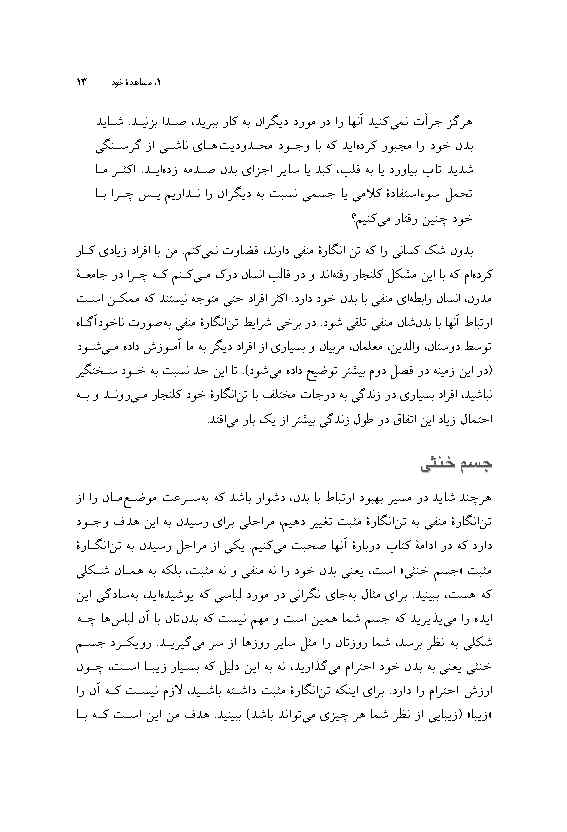 ۱. مشاهدهٔ خود ۱۳
هرگز جرأت نمی‌کنید آنها را در مورد دیگران به کار ببرید، صدا بزنید. شاید
بدن خود را مجبور کرده‌اید که با وجود محدودیت‌های ناشی از گرسنگی
شدید تاب بیاورد یا به قلب، کبد یا سایر اجزای بدن صدمه زده‌اید. اکثر ما
تحمل سوءاستفادهٔ کلامی یا جسمی نسبت به دیگران را نداریم پس چرا با
خود چنین رفتار می‌کنیم؟
بدون شک کسانی را که تن انگارهٔ منفی دارند، قضاوت نمی‌کنم. من با افراد زیادی کار
کرده‌ام که با این مشکل کلنجار رفته‌اند و در قالب انسان درک می‌کنم که چرا در جامعهٔ
مدرن، انسان رابطه‌ای منفی با بدن خود دارد. اکثر افراد حتی متوجه نیستند که ممکن است
ارتباط آنها با بدن‌شان منفی تلقی شود. در برخی شرایط تن‌انگارهٔ منفی به‌صورت ناخودآگاه
توسط دوستان، والدین، معلمان، مربیان و بسیاری از افراد دیگر به ما آموزش داده می‌شود
(در این زمینه در فصل دوم بیشتر توضیح داده می‌شود). تا این حد نسبت به خود سختگیر
نباشید، افراد بسیاری در زندگی به درجات مختلف با تن‌انگارهٔ خود کلنجار می‌روند و به
احتمال زیاد این اتفاق در طول زندگی بیشتر از یک بار می‌افتد.
جسم خنثی
هرچند شاید در مسیر بهبود ارتباط با بدن، دشوار باشد که به‌سرعت موضع‌مان را از
تن‌انگارهٔ منفی به تن‌انگارهٔ مثبت تغییر دهیم، مراحلی برای رسیدن به این هدف وجود
دارد که در ادامهٔ کتاب دربارهٔ آنها صحبت می‌کنیم. یکی از مراحل رسیدن به تن‌انگارهٔ
مثبت «جسم خنثی» است، یعنی بدن خود را نه منفی و نه مثبت، بلکه به همان شکلی
که هست، ببینید. برای مثال به‌جای نگرانی در مورد لباسی که پوشیده‌اید، به‌سادگی این
ایده را می‌پذیرید که جسم شما همین است و مهم نیست که بدن‌تان با آن لباس‌ها چه
شکلی به نظر برسد، شما روزتان را مثل سایر روزها از سر می‌گیرید. رویکرد جسم
خنثی یعنی به بدن خود احترام می‌گذارید، نه به این دلیل که بسیار زیبا است، چون
ارزش احترام را دارد. برای اینکه تن‌انگارهٔ مثبت داشته باشید، لازم نیست که آن را
«زیبا» (زیبایی از نظر شما هر چیزی می‌تواند باشد) ببینید. هدف من این است که با